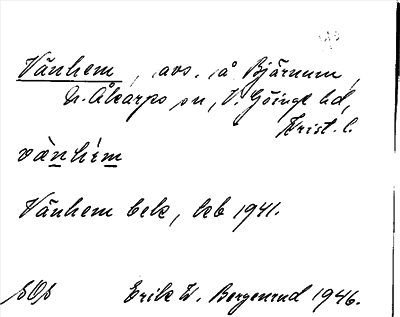 Vänhem, avs. å Bjärnum,
N. Åkarps sn, V. Göinge hd,
Krist. l.
vä̀nhém
Vänhem bek, beb 1941.
Erik W. Bergenrud 1946.